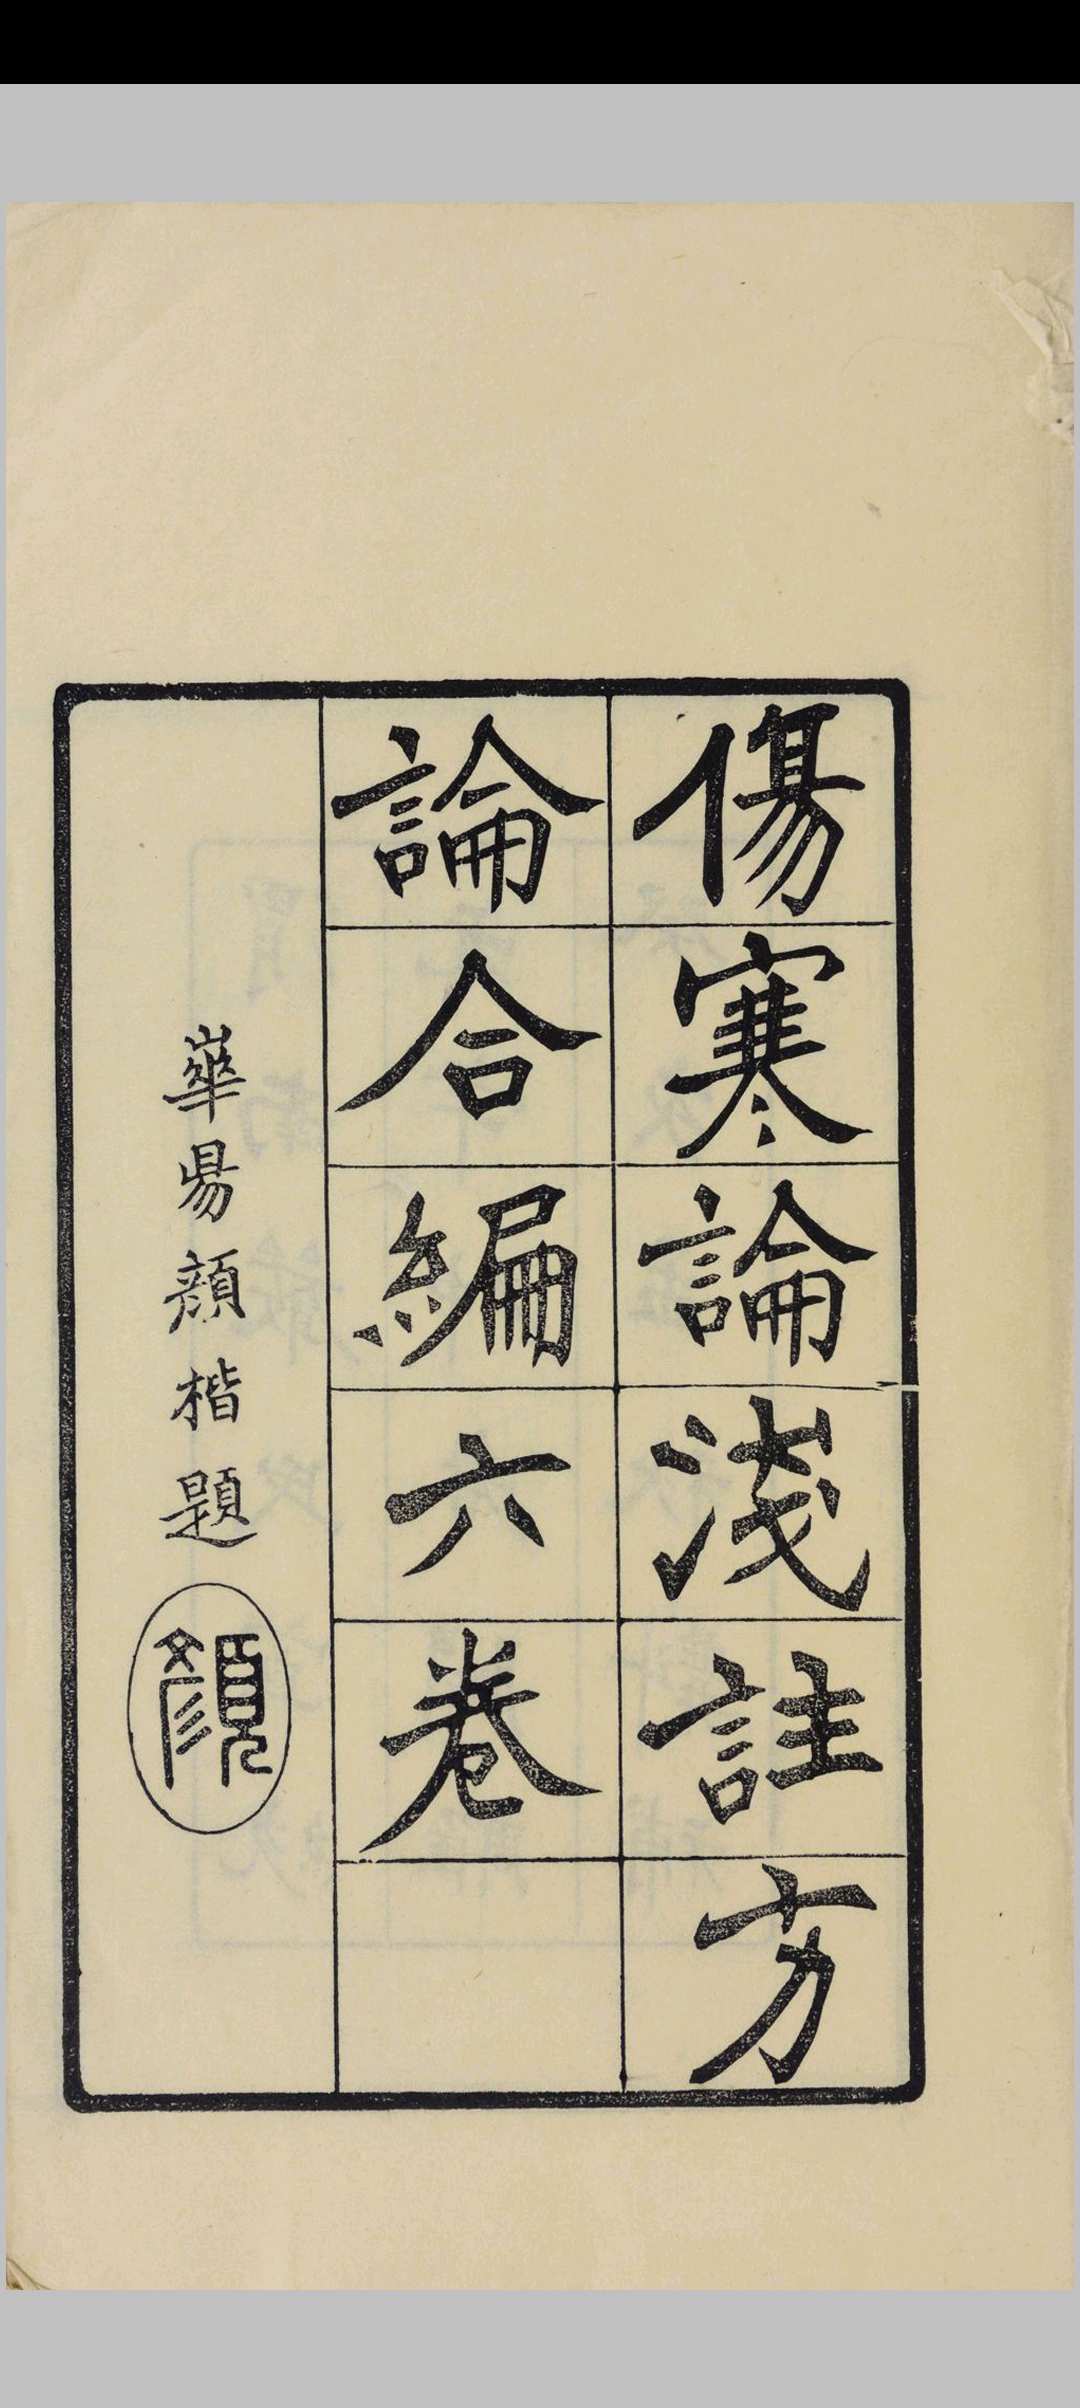 傷寒論淺註方
論合編六卷
崋昜顏楷題
顏